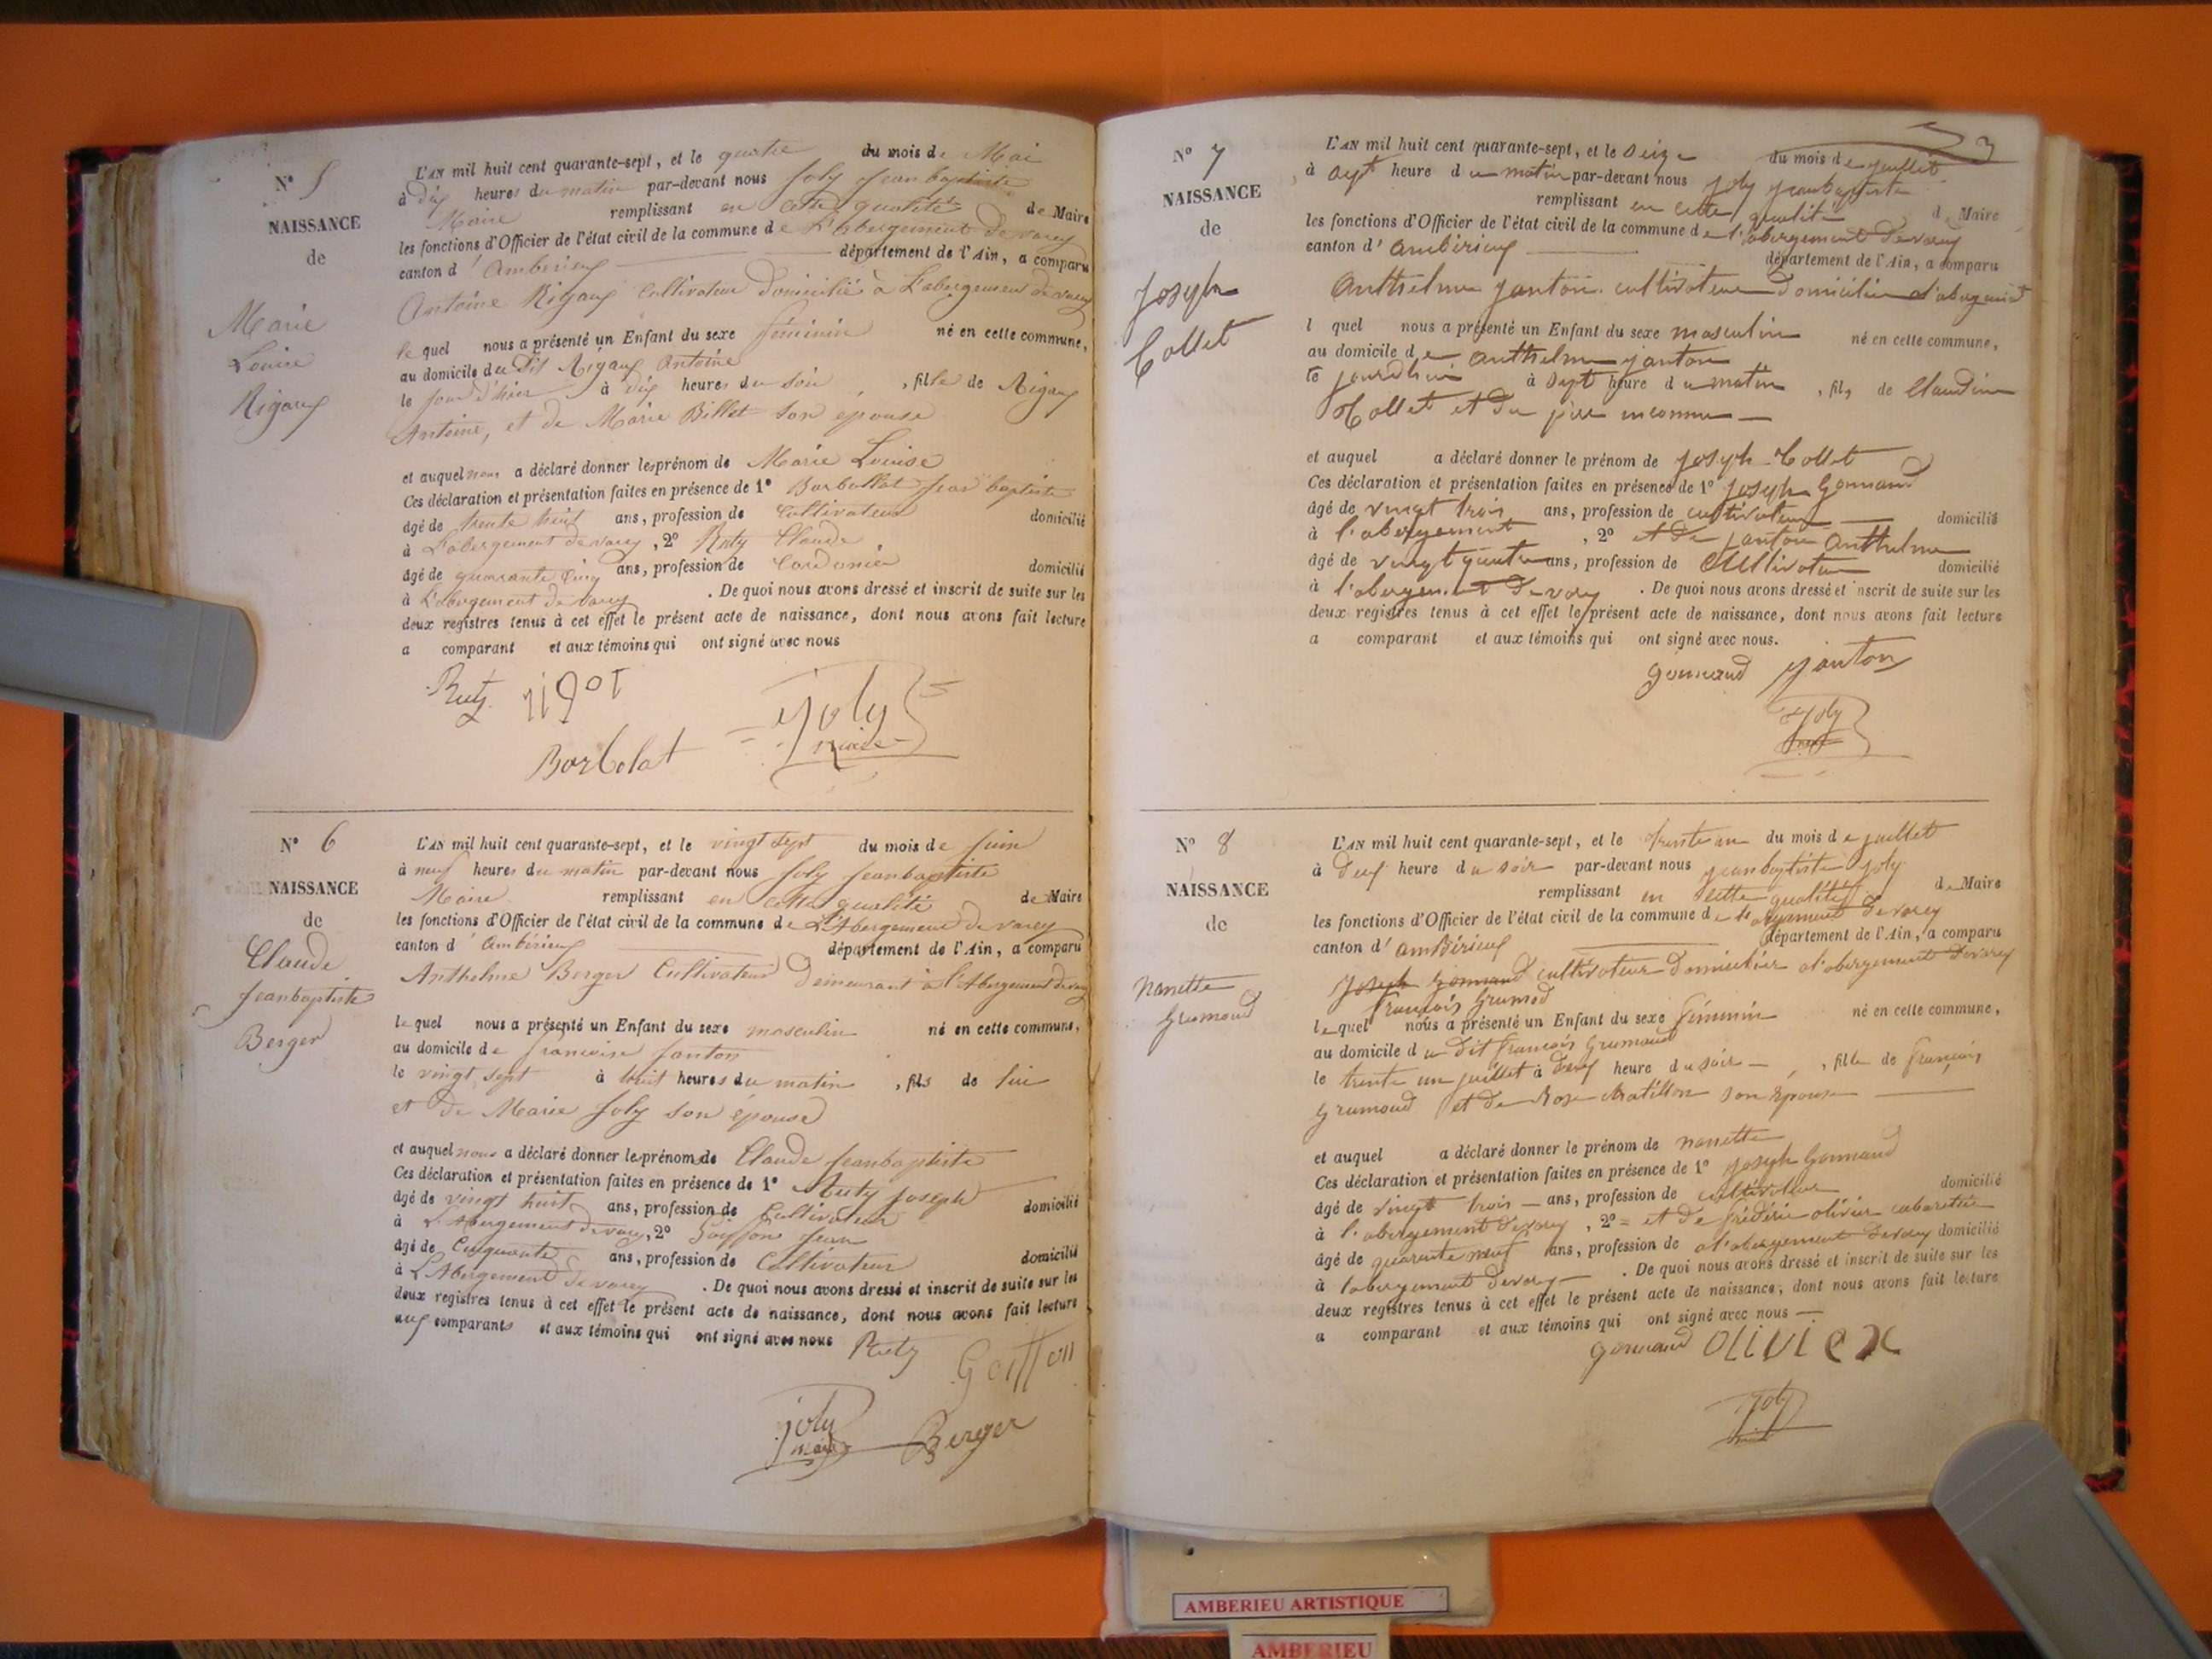 N° 5
NAISSANCE
de
Marie
Louise
Rigaux
L'AN mil huit cent quarante-sept, et le quatre du mois de Mai
à dix heures du matin par-devant nous Joly Jean baptiste
Maire remplissant en cette qualité de Maire
les fonctions d'Officier de l'état civil de la commune de L'abergement de varey
canton d'Amberieux département de l'Ain, a comparu
Antoine Rigaux Cultivateur domicilié à L'abergement de varey
le quel nous a présenté un Enfant du sexe féminin né en cette commune,
au domicile du dit Rigaux Antoine
le jour d'hier à dix heures du soir, fille de Rigaux
Antoine, et de Marie Billet son épouse
et auquel nous a déclaré donner les prénom de Marie Louise
Ces déclaration et présentation faites en présence de 1° Barbollat Jean baptiste
âgé de trente huit ans, profession de Cultivateur domicilié
à L'abergement de varey, 2° Ruty Claude
âgé de quarante cinq ans, profession de Cordonier domicilié
à L'abergement de varey. De quoi nous avons dressé et inscrit de suite sur les
deux registres tenus à cet effet le présent acte de naissance, dont nous avons fait lecture
a comparant et aux témoins qui ont signé avec nous
Ruty
Borbolat
Joly
maire
N° 6
NAISSANCE
de
Claude
Jeanbaptiste
Berger
L'AN mil huit cent quarante-sept, et le vingt sept du mois de Juin
à neuf heures du matin par-devant nous Joly Jeanbaptiste
Maire remplissant en cette qualité de Maire
les fonctions d'Officier de l'état civil de la commune de L'Abergement de varey
canton d'Ambérieux département de l'Ain, a comparu
Anthelme Berger Cultivateur Demeurant à l'Abergement de varey
le quel nous a présenté un Enfant du sexe masculin né en cette commune,
au domicile de françoise Janton
le vingt sept à huit heures du matin, fils de lui
et de Marie Joly son épouse
et auquel nous a déclaré donner les prénoms de Claude Jeanbaptiste
Ces déclaration et présentation faites en présence de 1° Ruty Joseph
âgé de vingt huit ans, profession de Cultivateur domicilié
à L'Abergement de varey, 2° Goiffon Jean
âgé de Cinquante ans, profession de Cultivateur domicilié
à L'Abergement de varey. De quoi nous avons dressé et inscrit de suite sur les
deux registres tenus à cet effet le présent acte de naissance, dont nous avons fait lecture
aux comparants et aux témoins qui ont signé avec nous Ruty
Goiffon
joly
maire
Berger
3
N° 7
NAISSANCE
de
Joseph
Collet
L'AN mil huit cent quarante-sept, et le seize du mois de juillet
à sept heure du matin par-devant nous joly jeanbaptiste
remplissant en cette qualité de Maire
les fonctions d'Officier de l'état civil de la commune de l'abergement de varey
canton d'ambérieux département de l'Ain, a comparu
Anthelme janton cultivateur domicilié
l quel nous a présenté un Enfant du sexe masculin né en cette commune,
au domicile de anthelme janton
le jourdhui à sept heure du matin, fils de Claudine
Collet et du père inconnu
et auquel a déclaré donner le prénom de joseph Collet
Ces déclaration et présentation faites en présence de 1° joseph Gonnand
âgé de vingt trois ans, profession de cultivateur domicilié
à l'abergement, 2° et de janton Anthelme
âgé de vingt quatre ans, profession de Cultivateur domicilié
à l'abergement de varey. De quoi nous avons dressé et inscrit de suite sur les
deux registres tenus à cet effet le présent acte de naissance, dont nous avons fait lecture
a comparant et aux témoins qui ont signé avec nous.
gonnand janton
Joly
N° 8
NAISSANCE
de
Nanette
Grumaud
L'AN mil huit cent quarante-sept, et le trente un du mois de juillet
à deux heure du soir par-devant nous jeanbaptiste joly
remplissant en cette qualité de Maire
les fonctions d'Officier de l'état civil de la commune de l'abergement de varey
canton d'ambérieux département de l'Ain, a comparu
joseph Gonnand cultivateur domicilier a l'abergement de varey
françois Grumod
le quel nous a présenté un Enfant du sexe féminin né en cette commune,
au domicile du dit françois Grumaud
le trente un juillet à deux heure du soir, fille de françois
Grumaud et de Rose son epouse
et auquel a déclaré donner le prénom de nanette
Ces déclaration et présentation faites en présence de 1° joseph Gonnand
âgé de vingt trois ans, profession de cultivateur domicilié
à l'abergement de varey, 2° = et de frédéric olivier cabaretier
âgé de quarante neuf ans, profession de a l'abergement de varey domicilié
à l'abergement de varey. De quoi nous avons dressé et inscrit de suite sur les
deux registres tenus à cet effet le présent acte de naissance, dont nous avons fait lecture
a comparant et aux témoins qui ont signé avec nous
gonnand OLIVIER
Joly
AMBERIEU ARTISTIQUE
AMBERIEU